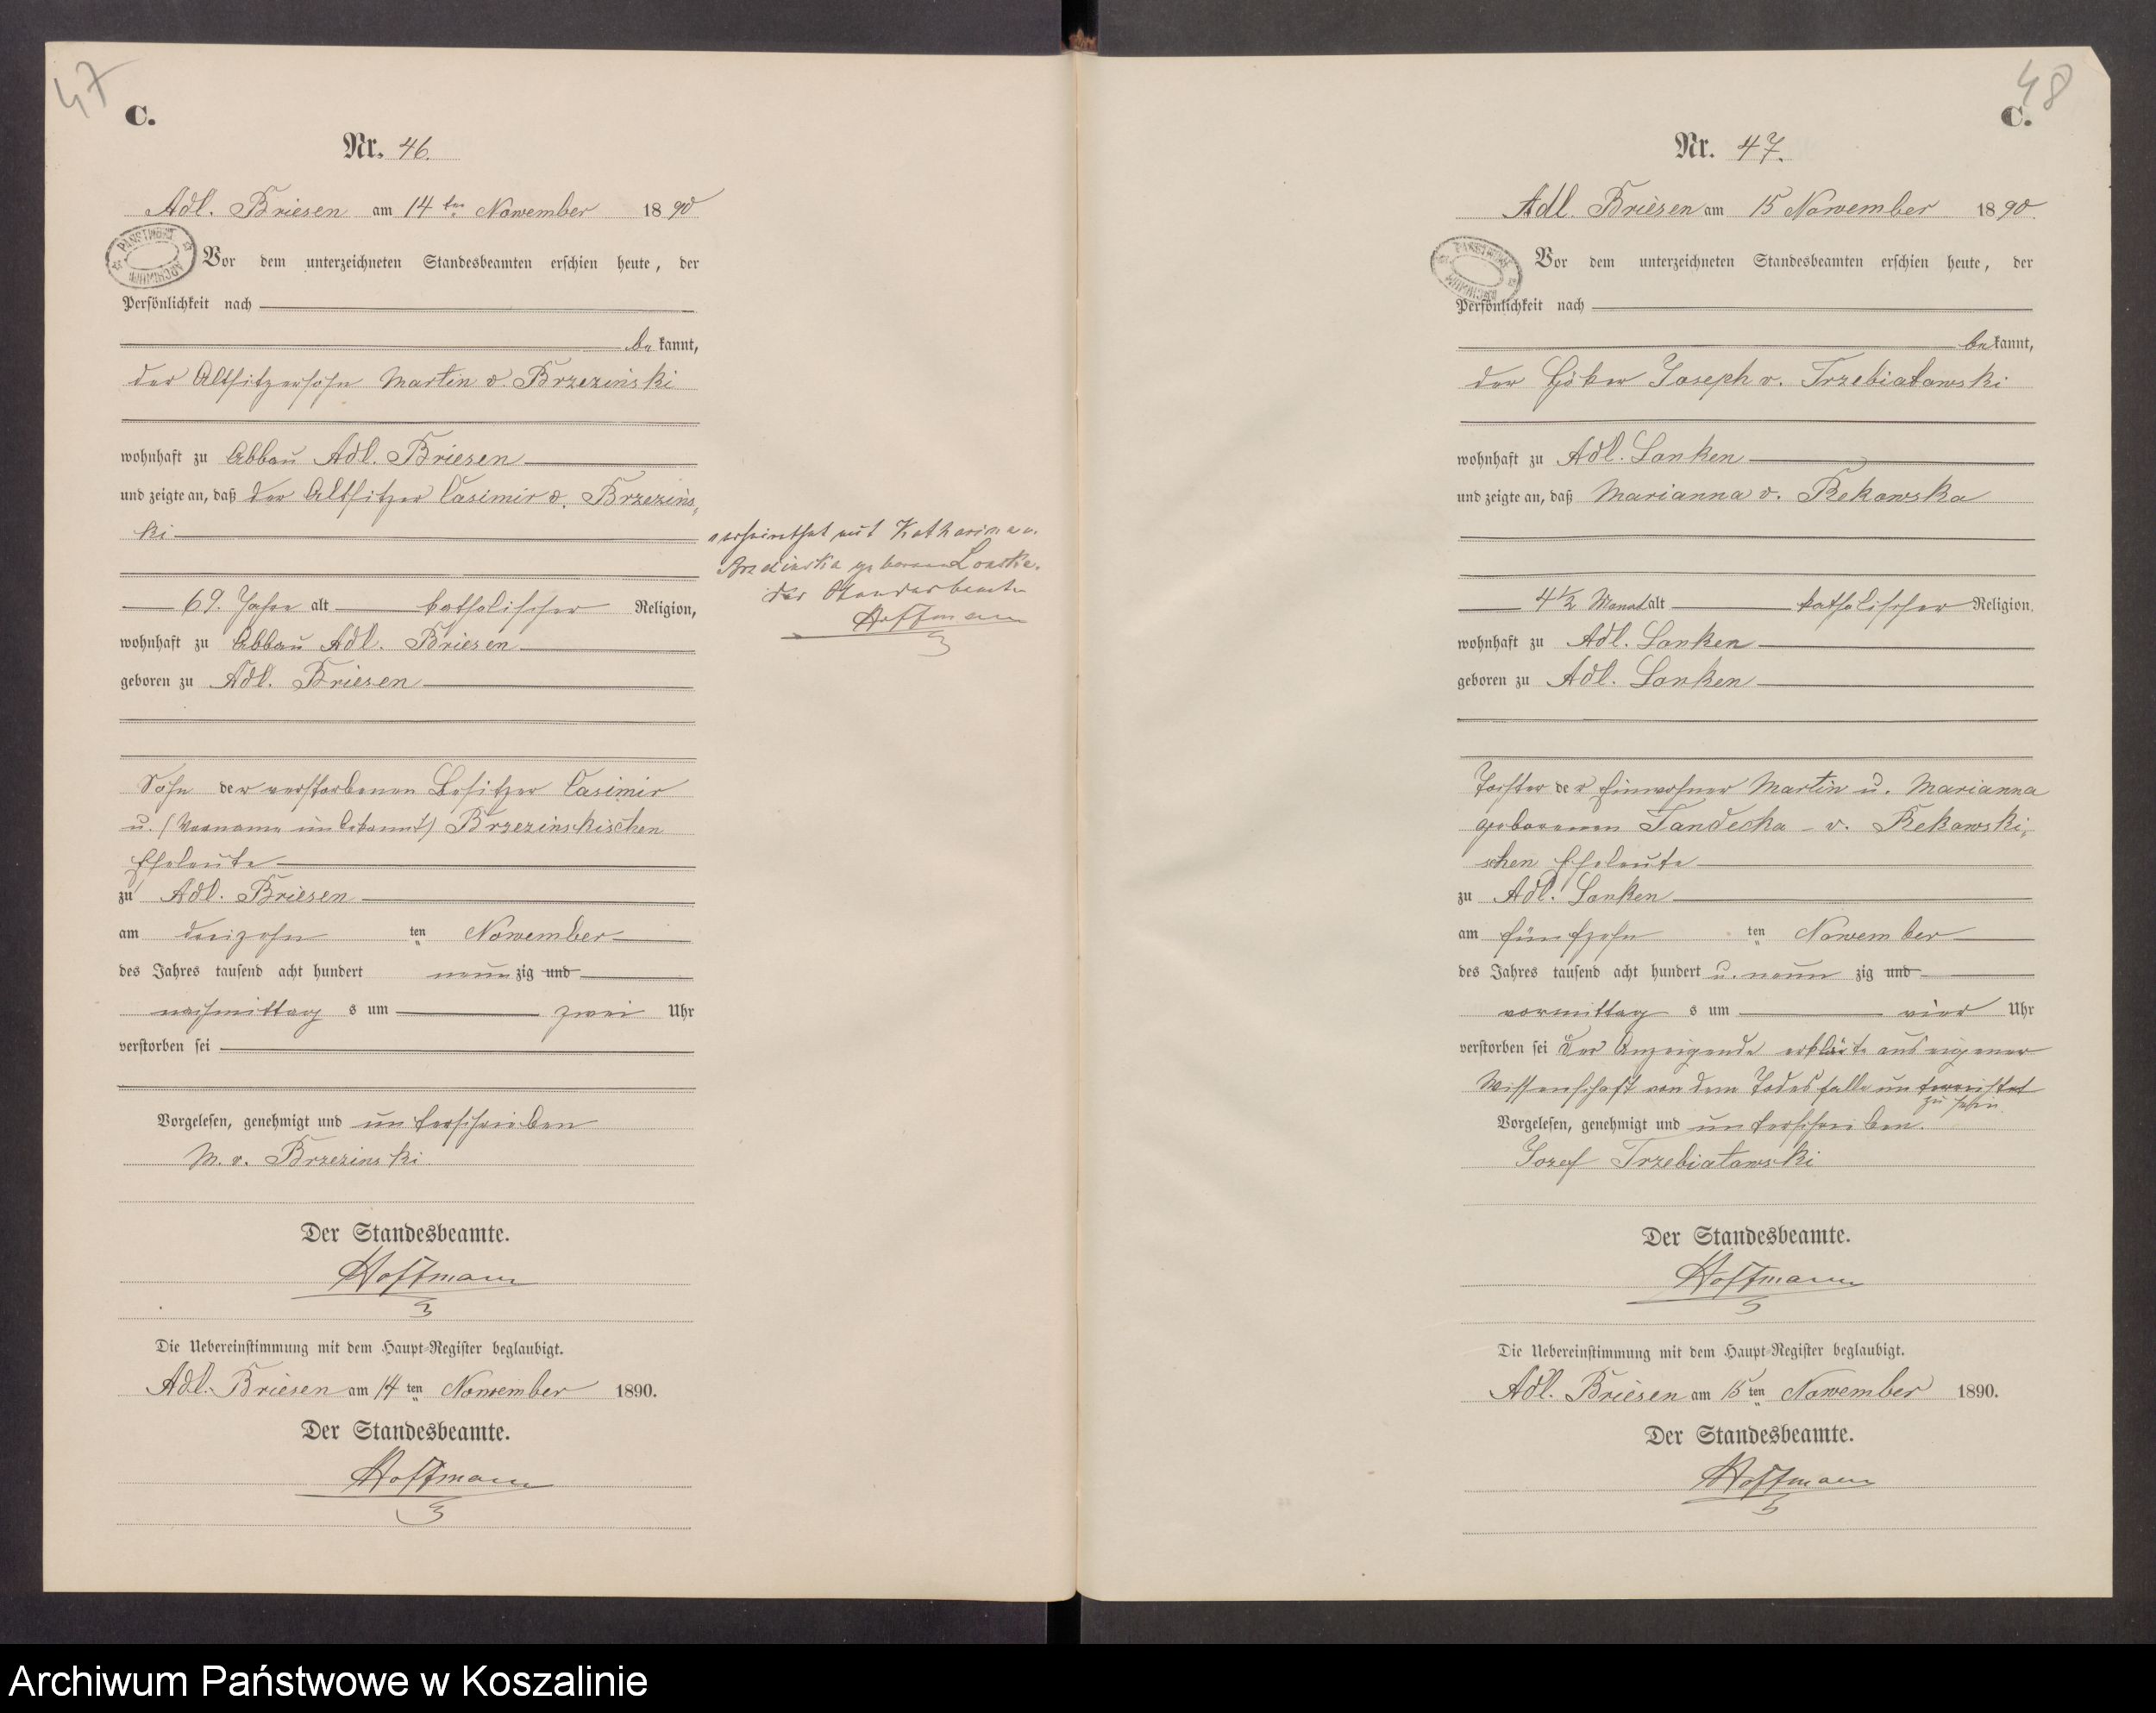 47
C.
Nr. 46.
Adl. Briesen am 14 ten November 1890
Vor dem unterzeichneten Standesbeamten erschien heute, der
Persönlichkeit nach
bekannt,
der Altsitzersohn Martin v. Brzezinski
wohnhaft zu Abbau Adl. Briesen
und zeigte an, daß der Altsitzer Casimir v. Brzezins,
ki
69. Jahre alt katholischer Religion,
wohnhaft zu Abbau Adl. Briesen
geboren zu Adl. Briesen
Sohn der verstorbenen Besitzer Casimir
u. (Vorname unbekannt) Brzezinskischen
Eheleute
zu Adl. Briesen
am dreizehn ten November
des Jahres tausend acht hundert neunzig und
nachmittags um zwei Uhr
verstorben sei
Vorgelesen, genehmigt und unterschrieben
M. v. Brzezinski.
Der Standesbeamte.
Hoffmann
Die Uebereinstimmung mit dem Haupt-Register beglaubigt.
Adl. Briesen am 14 ten November 1890.
Der Standesbeamte.
Hoffmann
verheirathet mit Katharina v.
geborene
der Standesbeamte
Hoffmann
48
C.
Nr. 47.
Adl. Briesen am 15 November 1890.
Vor dem unterzeichneten Standesbeamten erschien heute, der
Persönlichkeit nach
bekannt,
der Höker Joseph v. Trzebiatowski
wohnhaft zu Adl. Lanken
und zeigte an, daß Marianna v. Rekowska
4 1/2 Monat alt katholischer Religion,
wohnhaft zu Adl. Lanken
geboren zu Adl. Lanken
Tochter der Einwohner Martin u. Marianna
geborenen Tandecka - v. Rekowski,
schen Eheleute
zu Adl. Lanken
am fünfzehn ten November
des Jahres tausend acht hundert u. neun zig und
vormittags um vier Uhr
verstorben sei der Anzeigende erklärte aus eigener
Wissenschaft von dem Todesfalle unterrichtet
zu sein.
Vorgelesen, genehmigt und unterschrieben.
Jozef Trzebiatowski
Der Standesbeamte.
Hoffmann
Die Uebereinstimmung mit dem Haupt-Register beglaubigt.
Adl. Briesen am 15 ten November 1890.
Der Standesbeamte.
Hoffmann
Archiwum Państwowe w Koszalinie